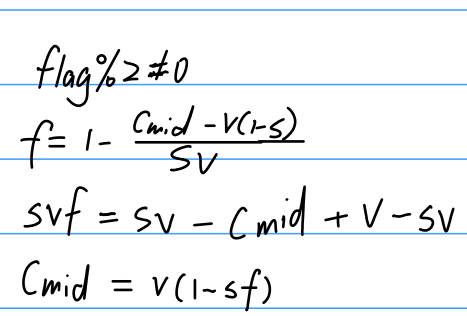 flag%2≠0
f = 1 - (Cmid - V(1-S))/SV
svf = SV - Cmid + V - SV
Cmid = V(1-sf)